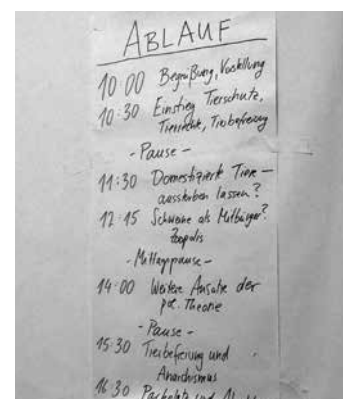 ABLAUF
10:00 Begrüßung, Vorstellung
10:30 Einstieg Tierschutz,
Tierrechte, Tierbefreiung
- Pause -
11:30 Domestizierte Tiere –
aussterben lassen?
12:15 Schweine als Mitbürger?
Zoopolis
- Mittagspause -
14:00 Weitere Ansätze der
pol. Theorie
- Pause -
15:30 Tierbefreiung und
Anarchismus
16:30 und